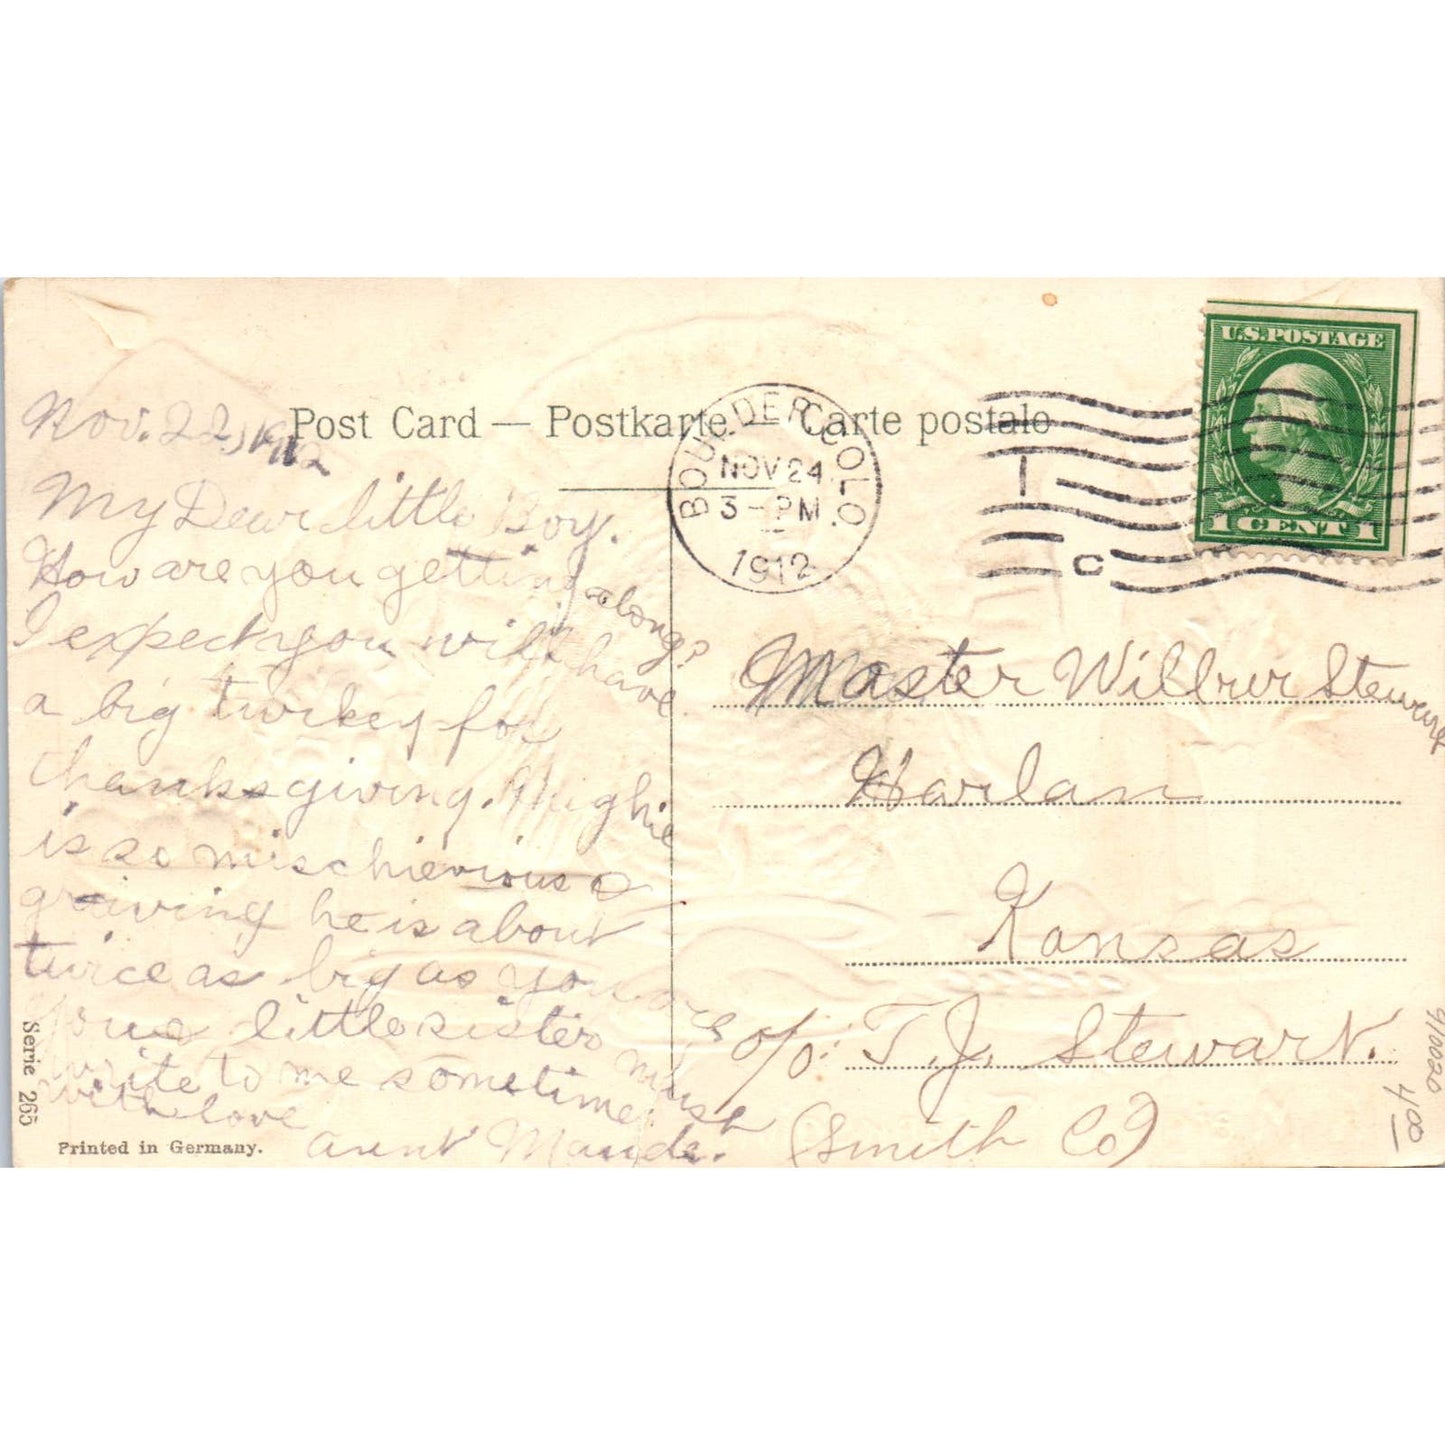 Post Card — Postkarte — Carte postale
Nov. 22, 1912
My Dear little Boy.
How are you getting along?
I expect you will have
a big turkey for
thanksgiving. Hughie
is so mischievious &
growing he is about
twice as big as you are
your little sister must
write to me sometime.
with love
Aunt Maude.
Serie 265
Printed in Germany.
BOULDER COLO.
NOV 24
3 - PM
1912
1
C
U.S. POSTAGE
1 CENT 1
Master Wilbur Stewart
Harlan
Kansas
c/o: T. J. Stewart.
(Smith Co)
400